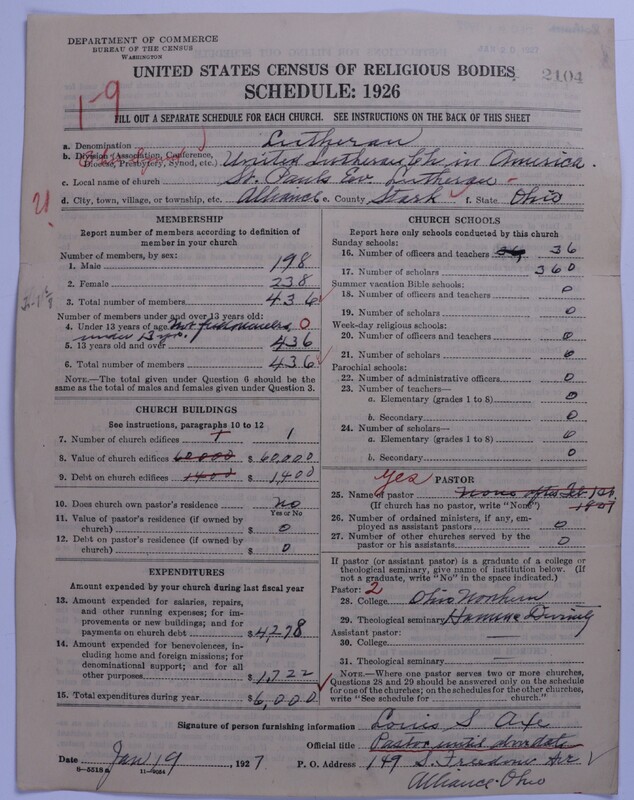 DEPARTMENT OF COMMERCE
BUREAU OF THE CENSUS
WASHINGTON
UNITED STATES CENSUS OF RELIGIOUS BODIES
2104
SCHEDULE: 1926
1-9
FILL OUT A SEPARATE SCHEDULE FOR EACH CHURCH. SEE INSTRUCTIONS ON THE BACK OF THIS SHEET
a. Denomination Lutheran
b. Division (Association, Conference, Diocese, Presbytery, Synod, etc.) United Lutheran Ch in America.
c. Local name of church St. Pauls Ev. Lutheran
d. City, town, village, or township, etc. Alliance e. County Stark f. State Ohio
21
MEMBERSHIP
Report number of members according to definition of member in your church
Number of members, by sex:
1. Male 198
2. Female 238
3. Total number of members 436
Number of members under and over 13 years old:
4. Under 13 years of age. under 13 yrs. 0
5. 13 years old and over 436
6. Total number of members 436
NOTE.—The total given under Question 6 should be the same as the total of males and females given under Question 3.
CHURCH BUILDINGS
See instructions, paragraphs 10 to 12
7. Number of church edifices 1 1
8. Value of church edifices 60,000 $ 60,000
9. Debt on church edifices 1400 $ 1,400
10. Does church own pastor's residence? no
Yes or No
11. Value of pastor's residence (if owned by church) $ 0
12. Debt on pastor's residence (if owned by church) $ 0
EXPENDITURES
Amount expended by your church during last fiscal year
13. Amount expended for salaries, repairs, and other running expenses; for improvements or new buildings; and for payments on church debt $ 4,278
14. Amount expended for benevolences, including home and foreign missions; for denominational support; and for all other purposes $ 1,722
15. Total expenditures during year $ 6,000
CHURCH SCHOOLS
Report here only schools conducted by this church
Sunday schools:
16. Number of officers and teachers 36
17. Number of scholars 360
Summer vacation Bible schools:
18. Number of officers and teachers 0
19. Number of scholars 0
Week-day religious schools:
20. Number of officers and teachers 0
21. Number of scholars 0
Parochial schools:
22. Number of administrative officers 0
23. Number of teachers—
a. Elementary (grades 1 to 8) 0
b. Secondary 0
24. Number of scholars—
a. Elementary (grades 1 to 8) 0
b. Secondary 0
Yes PASTOR
25. Name of pastor None after Feb 1st 1927
(If church has no pastor, write "None")
26. Number of ordained ministers, if any, employed as assistant pastors 0
27. Number of other churches served by the pastor or his assistants 0
If pastor (or assistant pastor) is a graduate of a college or theological seminary, give name of institution below. (If not a graduate, write "No" in the space indicated.)
Pastor: 2
28. College Ohio Northern
29. Theological seminary Hamma Divinity
Assistant pastor:
30. College
31. Theological seminary
NOTE.—Where one pastor serves two or more churches, Questions 28 and 29 should be answered only on the schedule for one of the churches; on the schedules for the other churches, write "See schedule for church."
Signature of person furnishing information Louis S Axe
Official title Pastor until above date
Date Jan 19, 1927 P. O. Address 149 S. Freedom Av
8—5518a 11—9054 Alliance Ohio